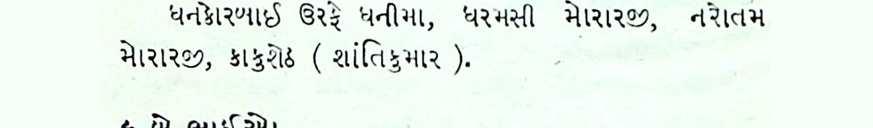 ધનકોરબાઈ ઉરફે ધનીમા, ધરમસી મોરારજી, નરોતમ
મોરારજી, કાકુશેઠ ( શાંતિકુમાર ).